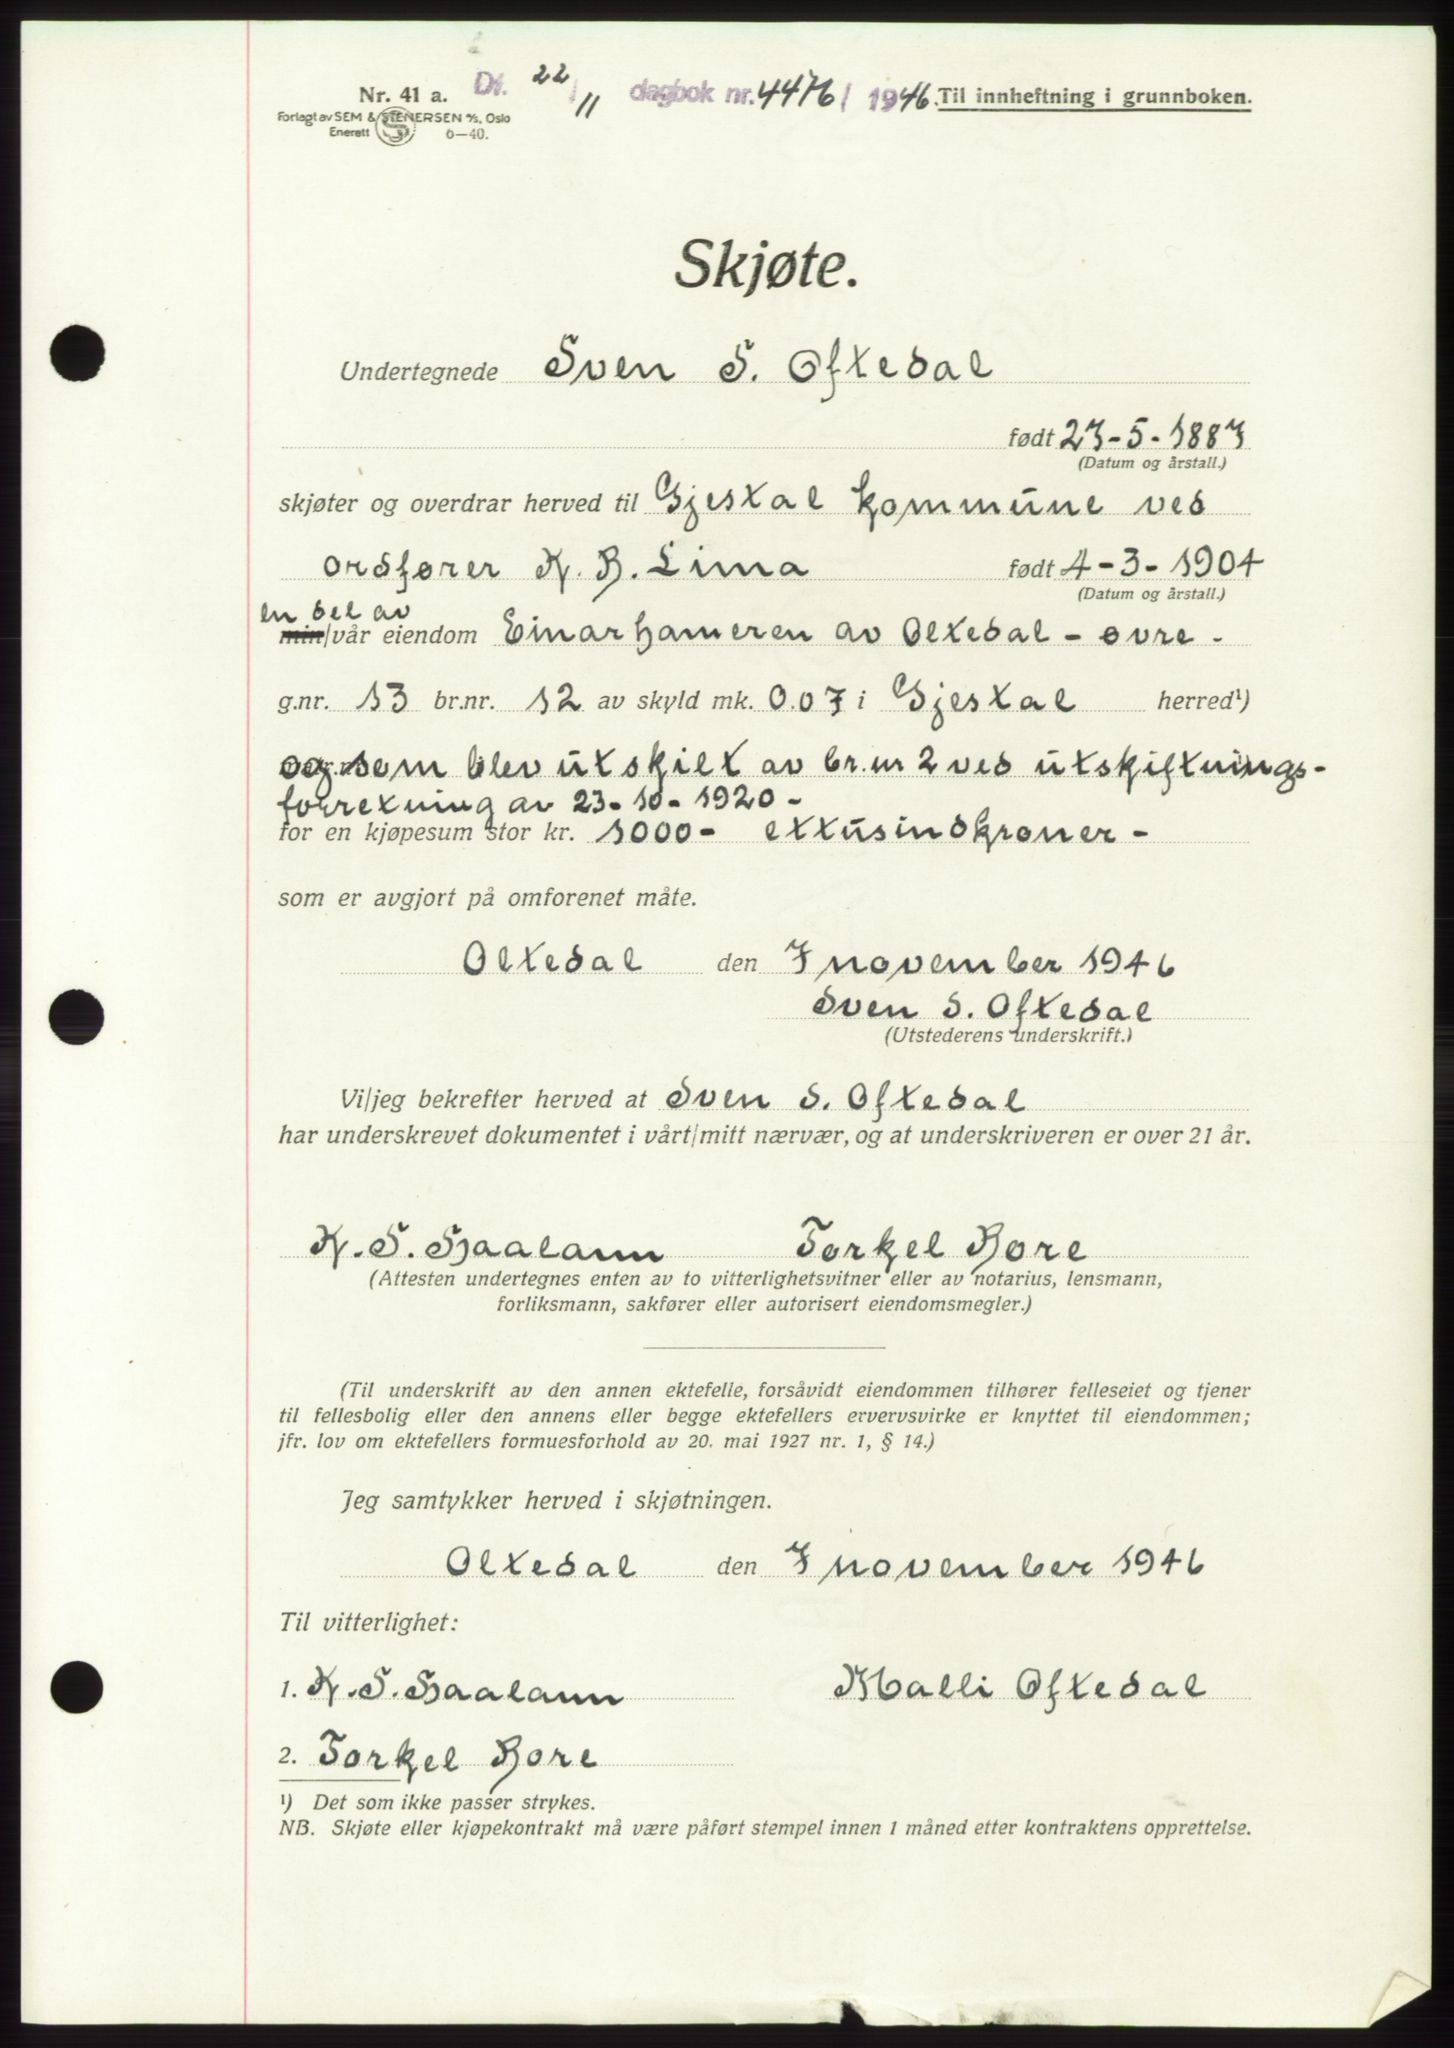 Nr. 41 a. Dt. 22/11 dagbok nr. 4476/1946. Til innheftning i grunnboken.
Forlagt av SEM & STENERSEN A/S, Oslo
Enerett S 6—40.
Skjøte.
Undertegnede Sven S. Oftedal
født 27-5-1887
(Datum og årstall.)
skjøter og overdrar herved til Gjestal kommune ved
ordfører K. B. Lima født 4-3-1904
(Datum og årstall.)
en del av
min/vår eiendom Einarhameren av Oltedal - øvre -
g.nr. 13 br.nr. 12 av skyld mk. 0.07 i Gjestal herred¹)
og som blev utskilt av br.nr 2 ved utskiftnings-
forretning av 23-10-1920-
for en kjøpesum stor kr. 1000- ettusindkroner-
som er avgjort på omforenet måte.
Oltedal den 7 november 1946
Sven S. Oftedal
(Utstederens underskrift.)
Vi/jeg bekrefter herved at Sven S. Oftedal
har underskrevet dokumentet i vårt/mitt nærvær, og at underskriveren er over 21 år.
K. S. Haaland Torkel Bore
(Attesten undertegnes enten av to vitterlighetsvitner eller av notarius, lensmann,
forliksmann, sakfører eller autorisert eiendomsmegler.)
(Til underskrift av den annen ektefelle, forsåvidt eiendommen tilhører felleseiet og tjener
til fellesbolig eller den annens eller begge ektefellers ervervsvirke er knyttet til eiendommen;
jfr. lov om ektefellers formuesforhold av 20. mai 1927 nr. 1, § 14.)
Jeg samtykker herved i skjøtningen.
Oltedal den 7 november 1946
Til vitterlighet:
1. K. S. Haaland Malli Oftedal
2. Torkel Bore
¹) Det som ikke passer strykes.
NB. Skjøte eller kjøpekontrakt må være påført stempel innen 1 måned etter kontraktens opprettelse.